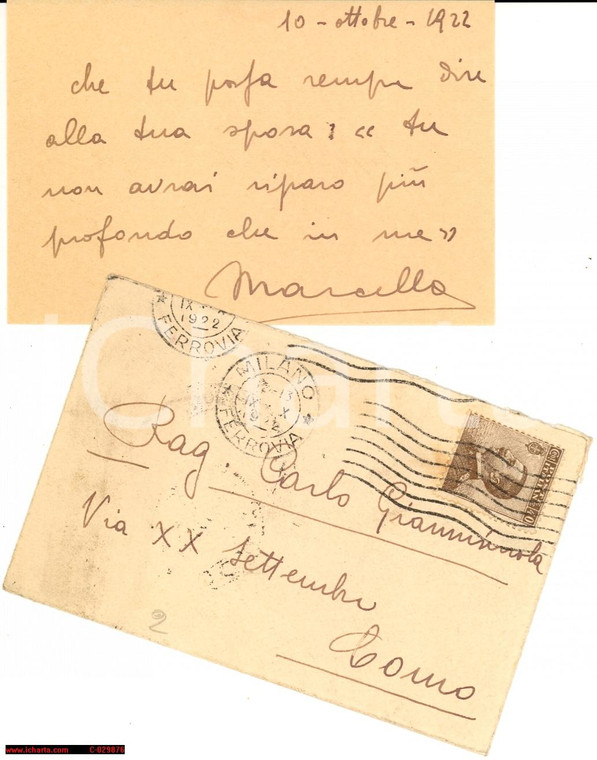 10 - ottobre - 1922
che tu possa sempre dire
alla tua sposa: « tu
non avrai riparo più
profondo che in me»
Marcella
1922
FERROVIA
MILANO
FERROVIA
Rag. Carlo
Via XX Settembre
Como
2
www.icharta.com C-029876